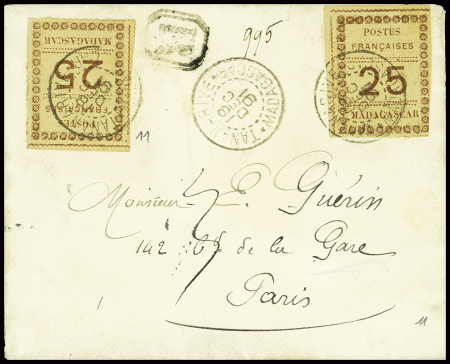 POSTES
FRANÇAISES
25
MADAGASCAR
POSTES
FRANÇAISES
25
MADAGASCAR
R
995
MADAGASCAR
DEC
91
11
Monsieur E. Guérin
142 de la Gare
Paris
11